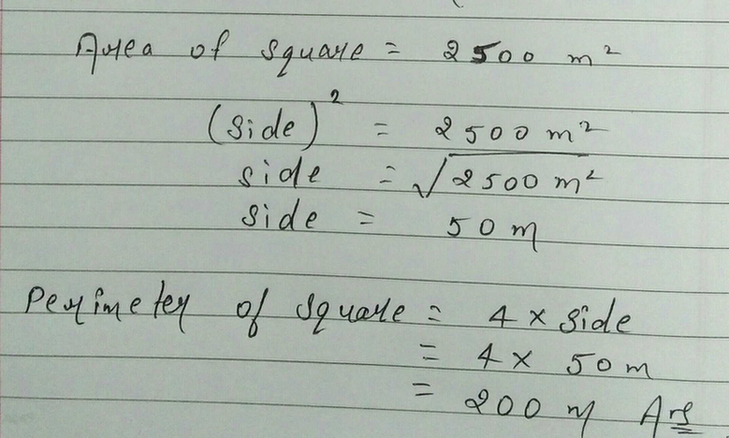 Area of square = 2500 m²
(side)² = 2500 m²
side = √2500 m²
side = 50 m
Perimeter of square = 4 × side
= 4 × 50 m
= 200 m Ans